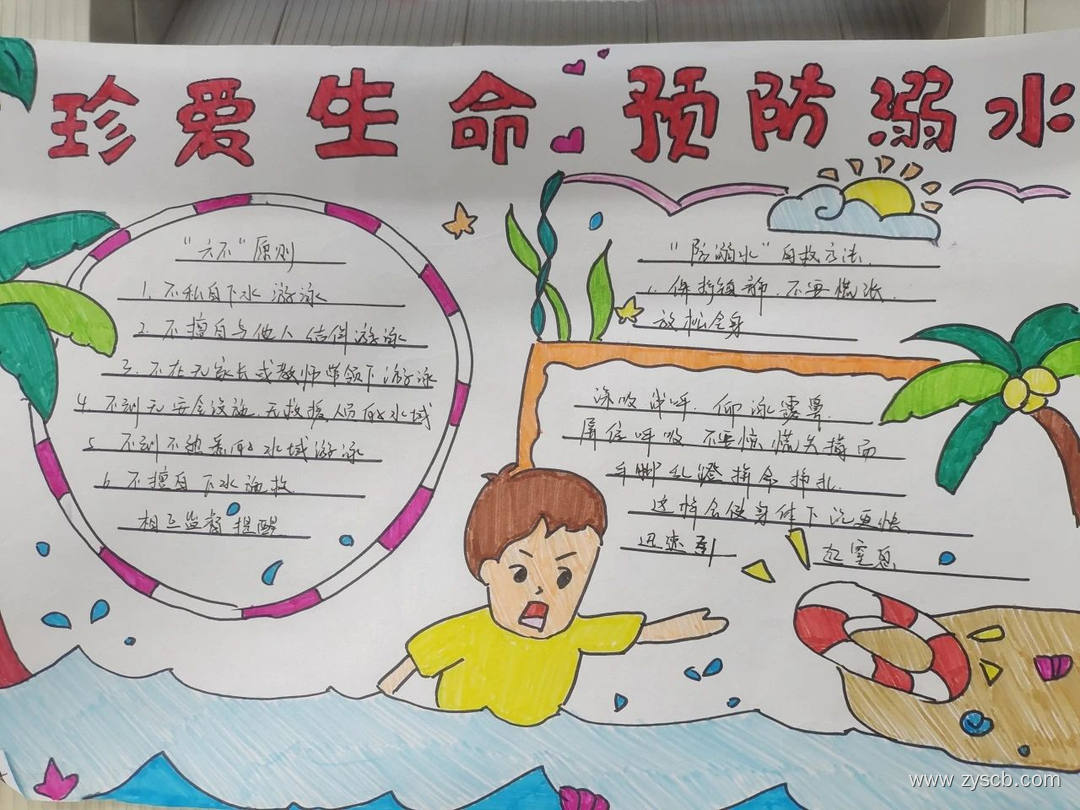 珍爱生命 预防溺水
"六不"原则
1. 不私自下水游泳
2. 不擅自与他人结伴游泳
3. 不在无家长或教师带领下游泳
4. 不到无安全设施、无救援人员的水域
5. 不到不熟悉的水域游泳
6. 不擅自下水施救
相互监督提醒
"防溺水"自救方法
1. 保持镇静,不要慌张
放松全身
深吸 呼,仰泳露鼻
屏住呼吸 不要惊慌失措而
手脚乱蹬拼命挣扎
这样会使身体下沉更快
迅速到
起窒息
www.zyscb.com